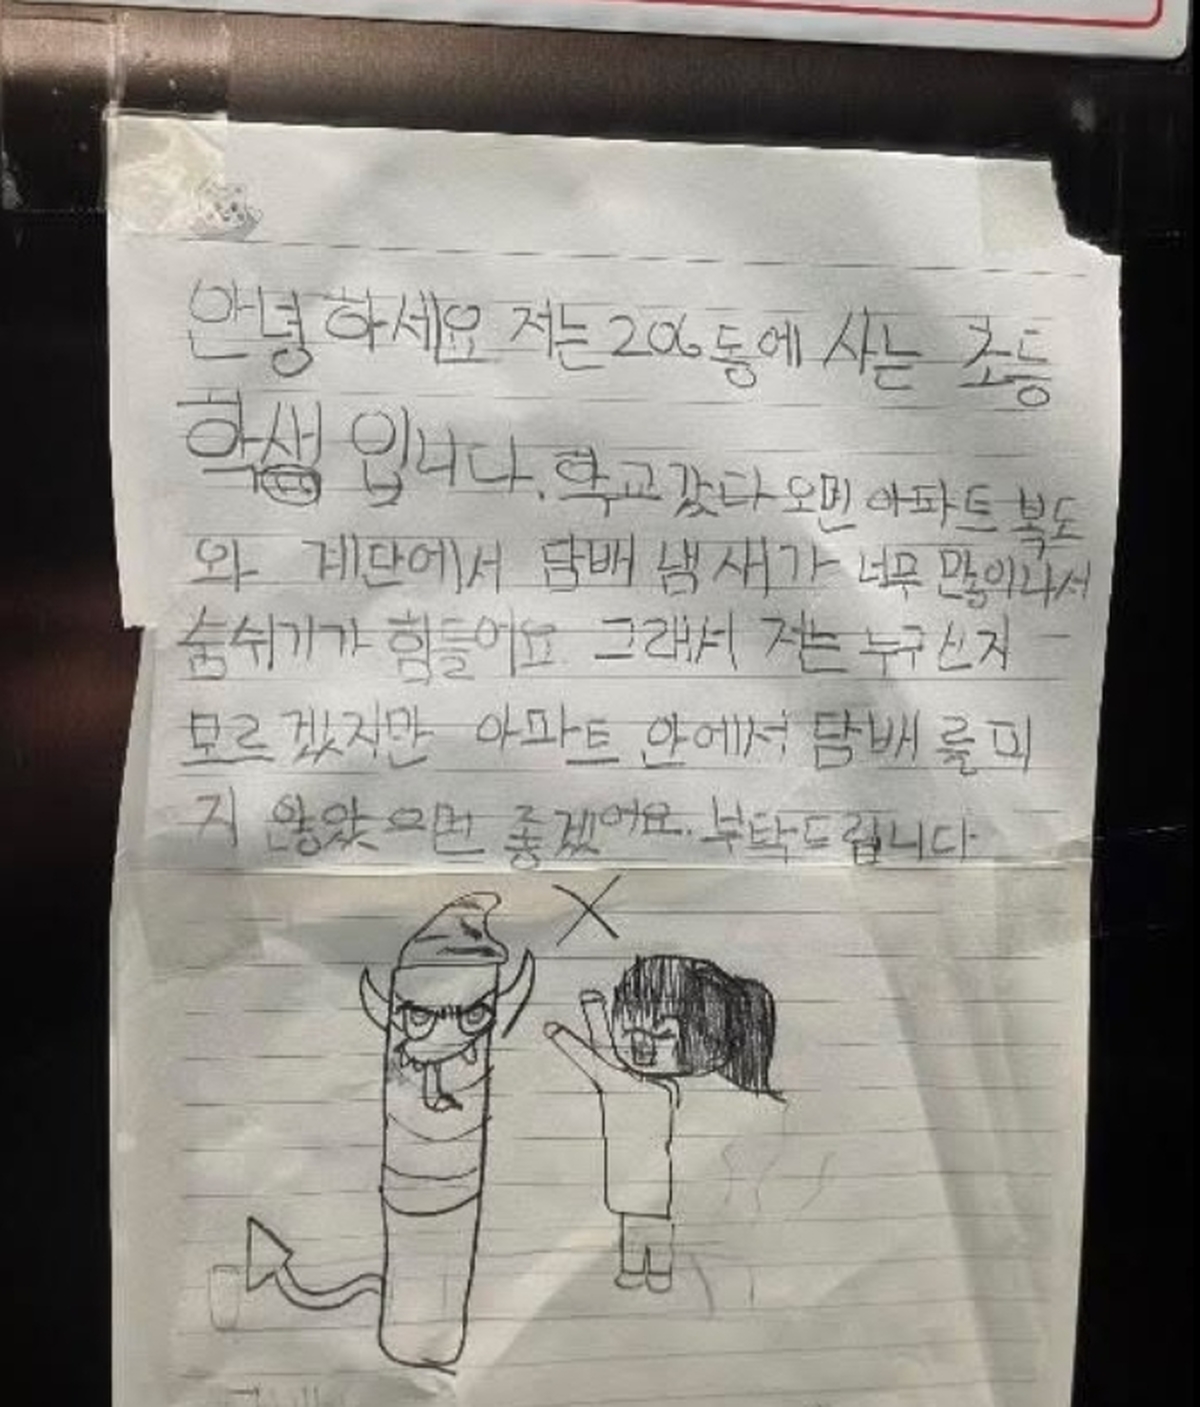 안녕 하세요 저는 206동에 사는 초등
학생 입니다. 학교 갔다 오면 아파트 복도
와 계단에서 담배 냄새가 너무 많이나서
숨쉬기가 힘들어요 그래서 저는 누구신지
모르겠지만 아파트 안에서 담배를 피
지 않았으면 좋겠어요. 부탁드립니다